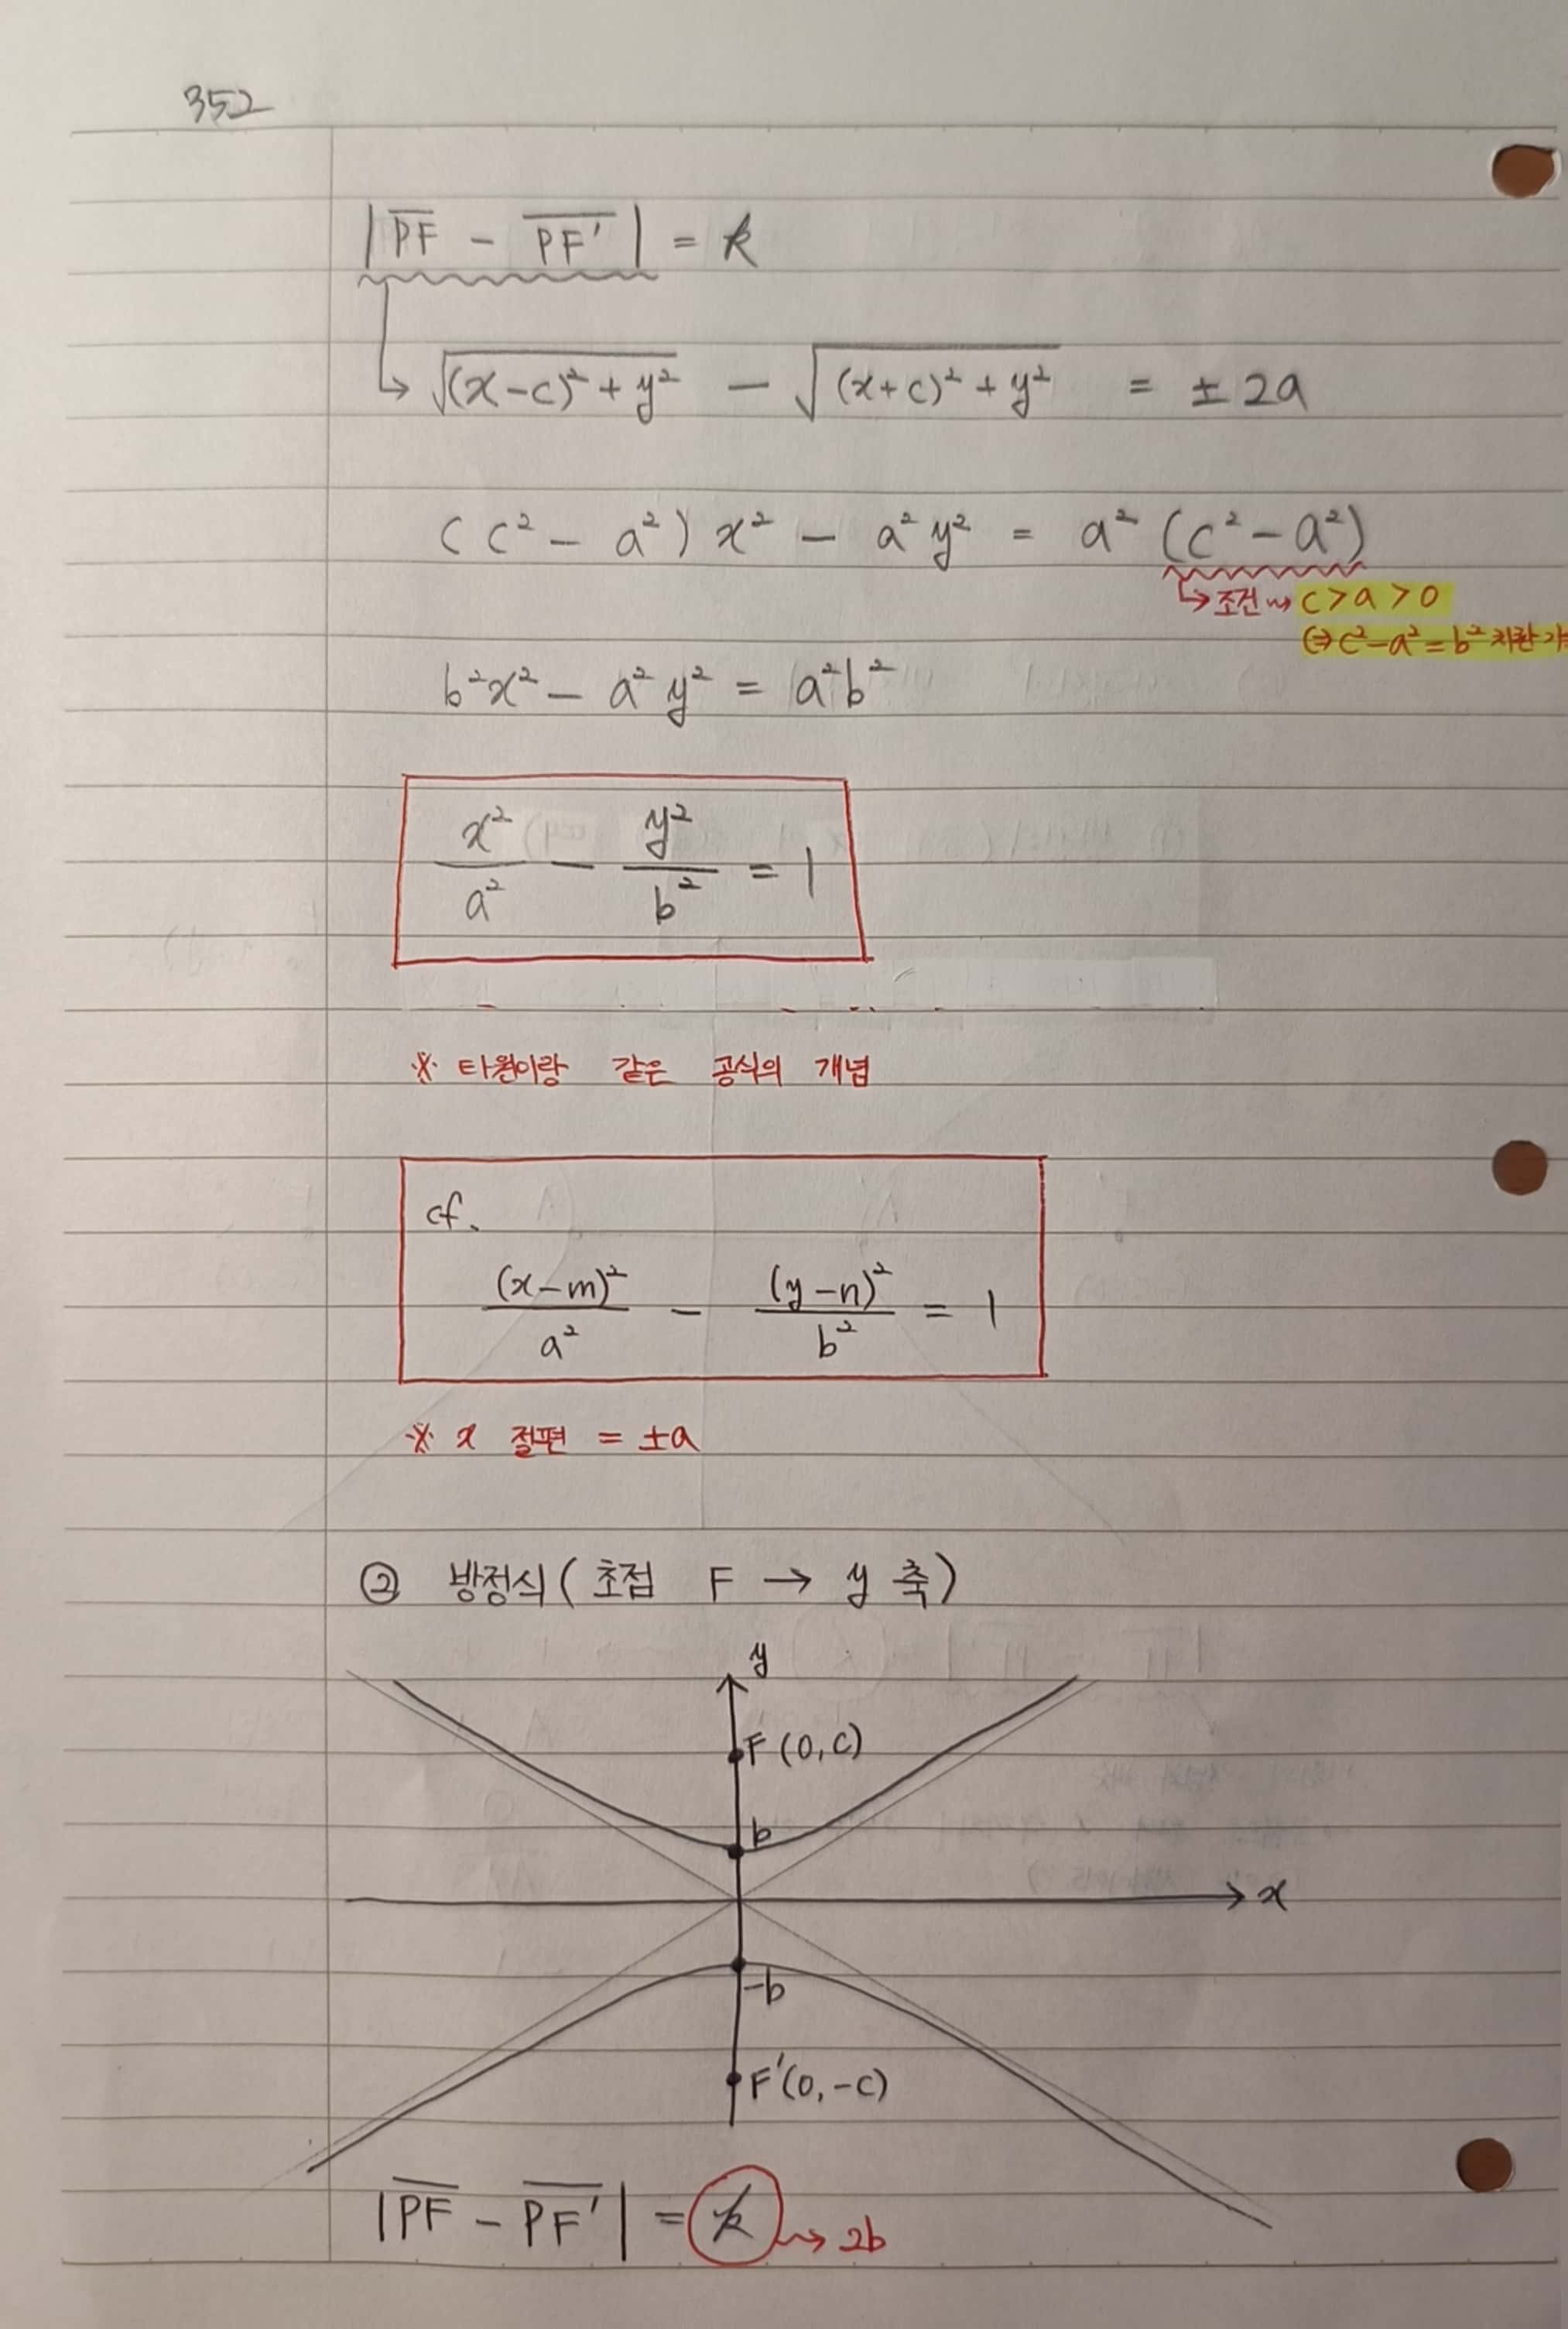 352
|PF̅ - PF'̅| = k
↳ √(x-c)² + y² - √(x+c)² + y² = ± 2a
(c² - a²) x² - a² y² = a² (c² - a²)
↳ 조건 ⇝ c > a > 0
(⇒ c² - a² = b² 치환
b²x² - a² y² = a²b²
x²/a² - y²/b² = 1
※ 타원이랑 같은 공식의 개념
cf.
(x-m)²/a² - (y-n)²/b² = 1
※ x 절편 = ±a
② 방정식 (초점 F → y 축)
y
F (0, c)
b
x
-b
F'(0, -c)
|PF̅ - PF'̅| = k ⇝ 2b